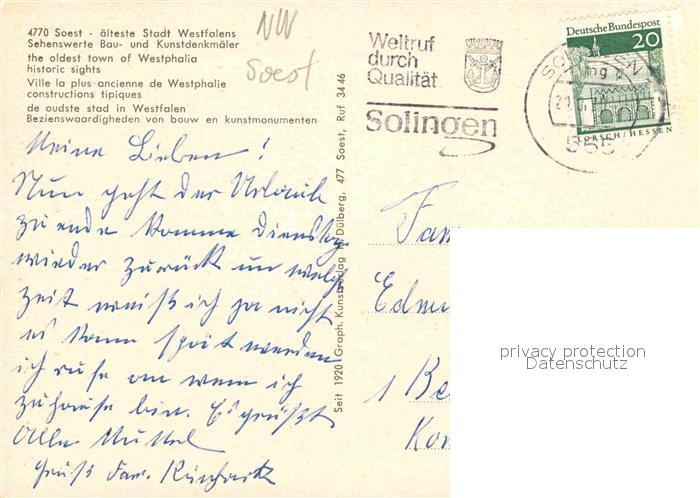 4770 Soest - älteste Stadt Westfalens
Sehenswerte Bau- und Kunstdenkmäler
the oldest town of Westphalia
historic sights
Ville la plus ancienne de Westphalie
constructions tipiques
de oudste stad in Westfalen
Bezienswaardigheden von bouw en kunstmonumenten
NW
Soest
Meine Lieben!
Nun geht der Urlaub
zu ende komme Dienstag
wieder zurück um welche
zeit weiß ich ja nicht
es kann spät werden
ich rufe an wenn ich
zuhause bin. Es grüßt
Alle Muttel
Gruß Fam.
Seit 1920 Graph. Kunstverlag H. Dülberg, 477 Soest, Ruf 34 46
Weltruf
durch
Qualität
Solingen
Deutsche Bundespost
20
LORSCH/HESSEN
Fam
Edmu
1 Be
Kon
privacy protection
Datenschutz